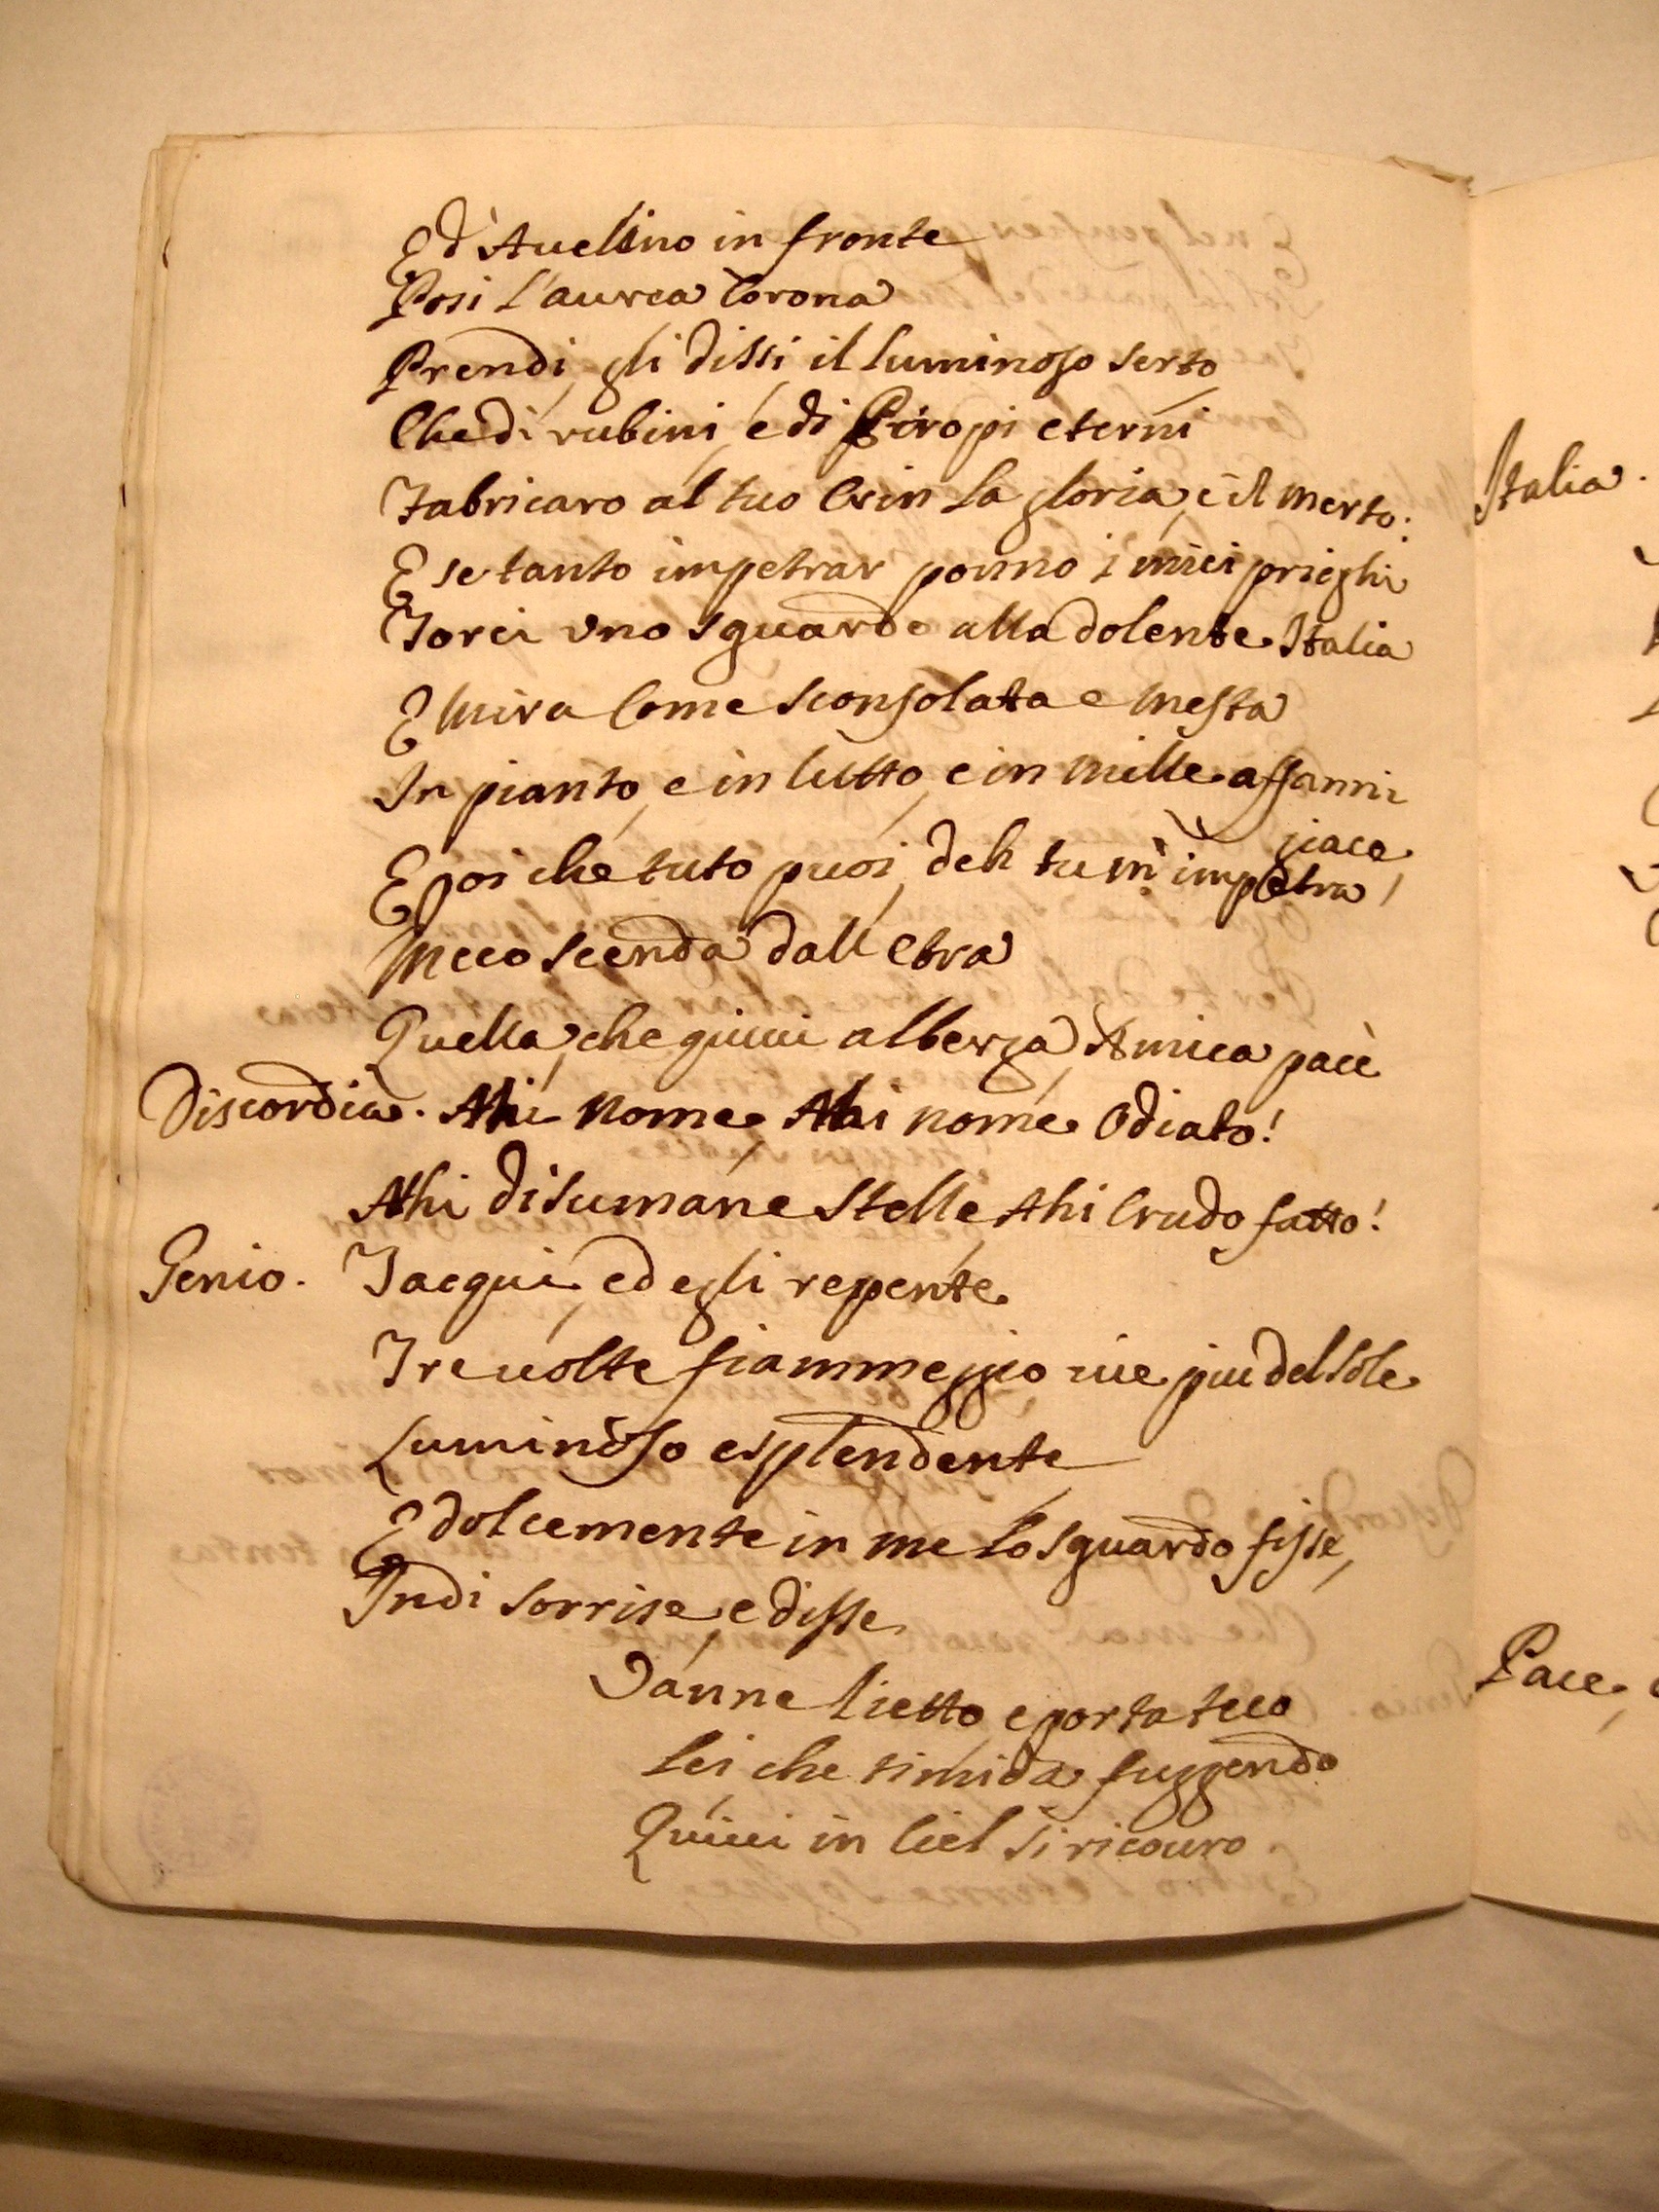 Ed'Avellino in fronte
Posi l'aurea Corona
Prendi, gli dissi, il luminoso serto,
Che di rubini, e di Piropi eterni
Fabricaro al tuo Crin la gloria, e il merto:
E se tanto impetrar ponno i miei prieghi
Torci uno sguardo alla dolente Italia
E mira Come sconsolata e mesta
In pianto, e in lutto, e in mille affanni
giace,
E poi che tuto puoi, deh tu m'impetra,
Meco scenda dall Etra
Quella, che quiui alberga, Amica pace
Discordia. Ahi Nome, Ahi nome Odiato!
Ahi disumane Stelle, Ahi Crudo fatto!
Genio. Tacqui, ed egli repente
Tre uolte fiammeggio uie piu del Sole
Luminoso e splendente,
E dolcemente in me lo sguardo fisse,
Indi sorrise, e disse
Vanne lietto, e porta teco
Lei che timida fuggendo
Quiui in Ciel si ricouro.
Italia.
Pace,